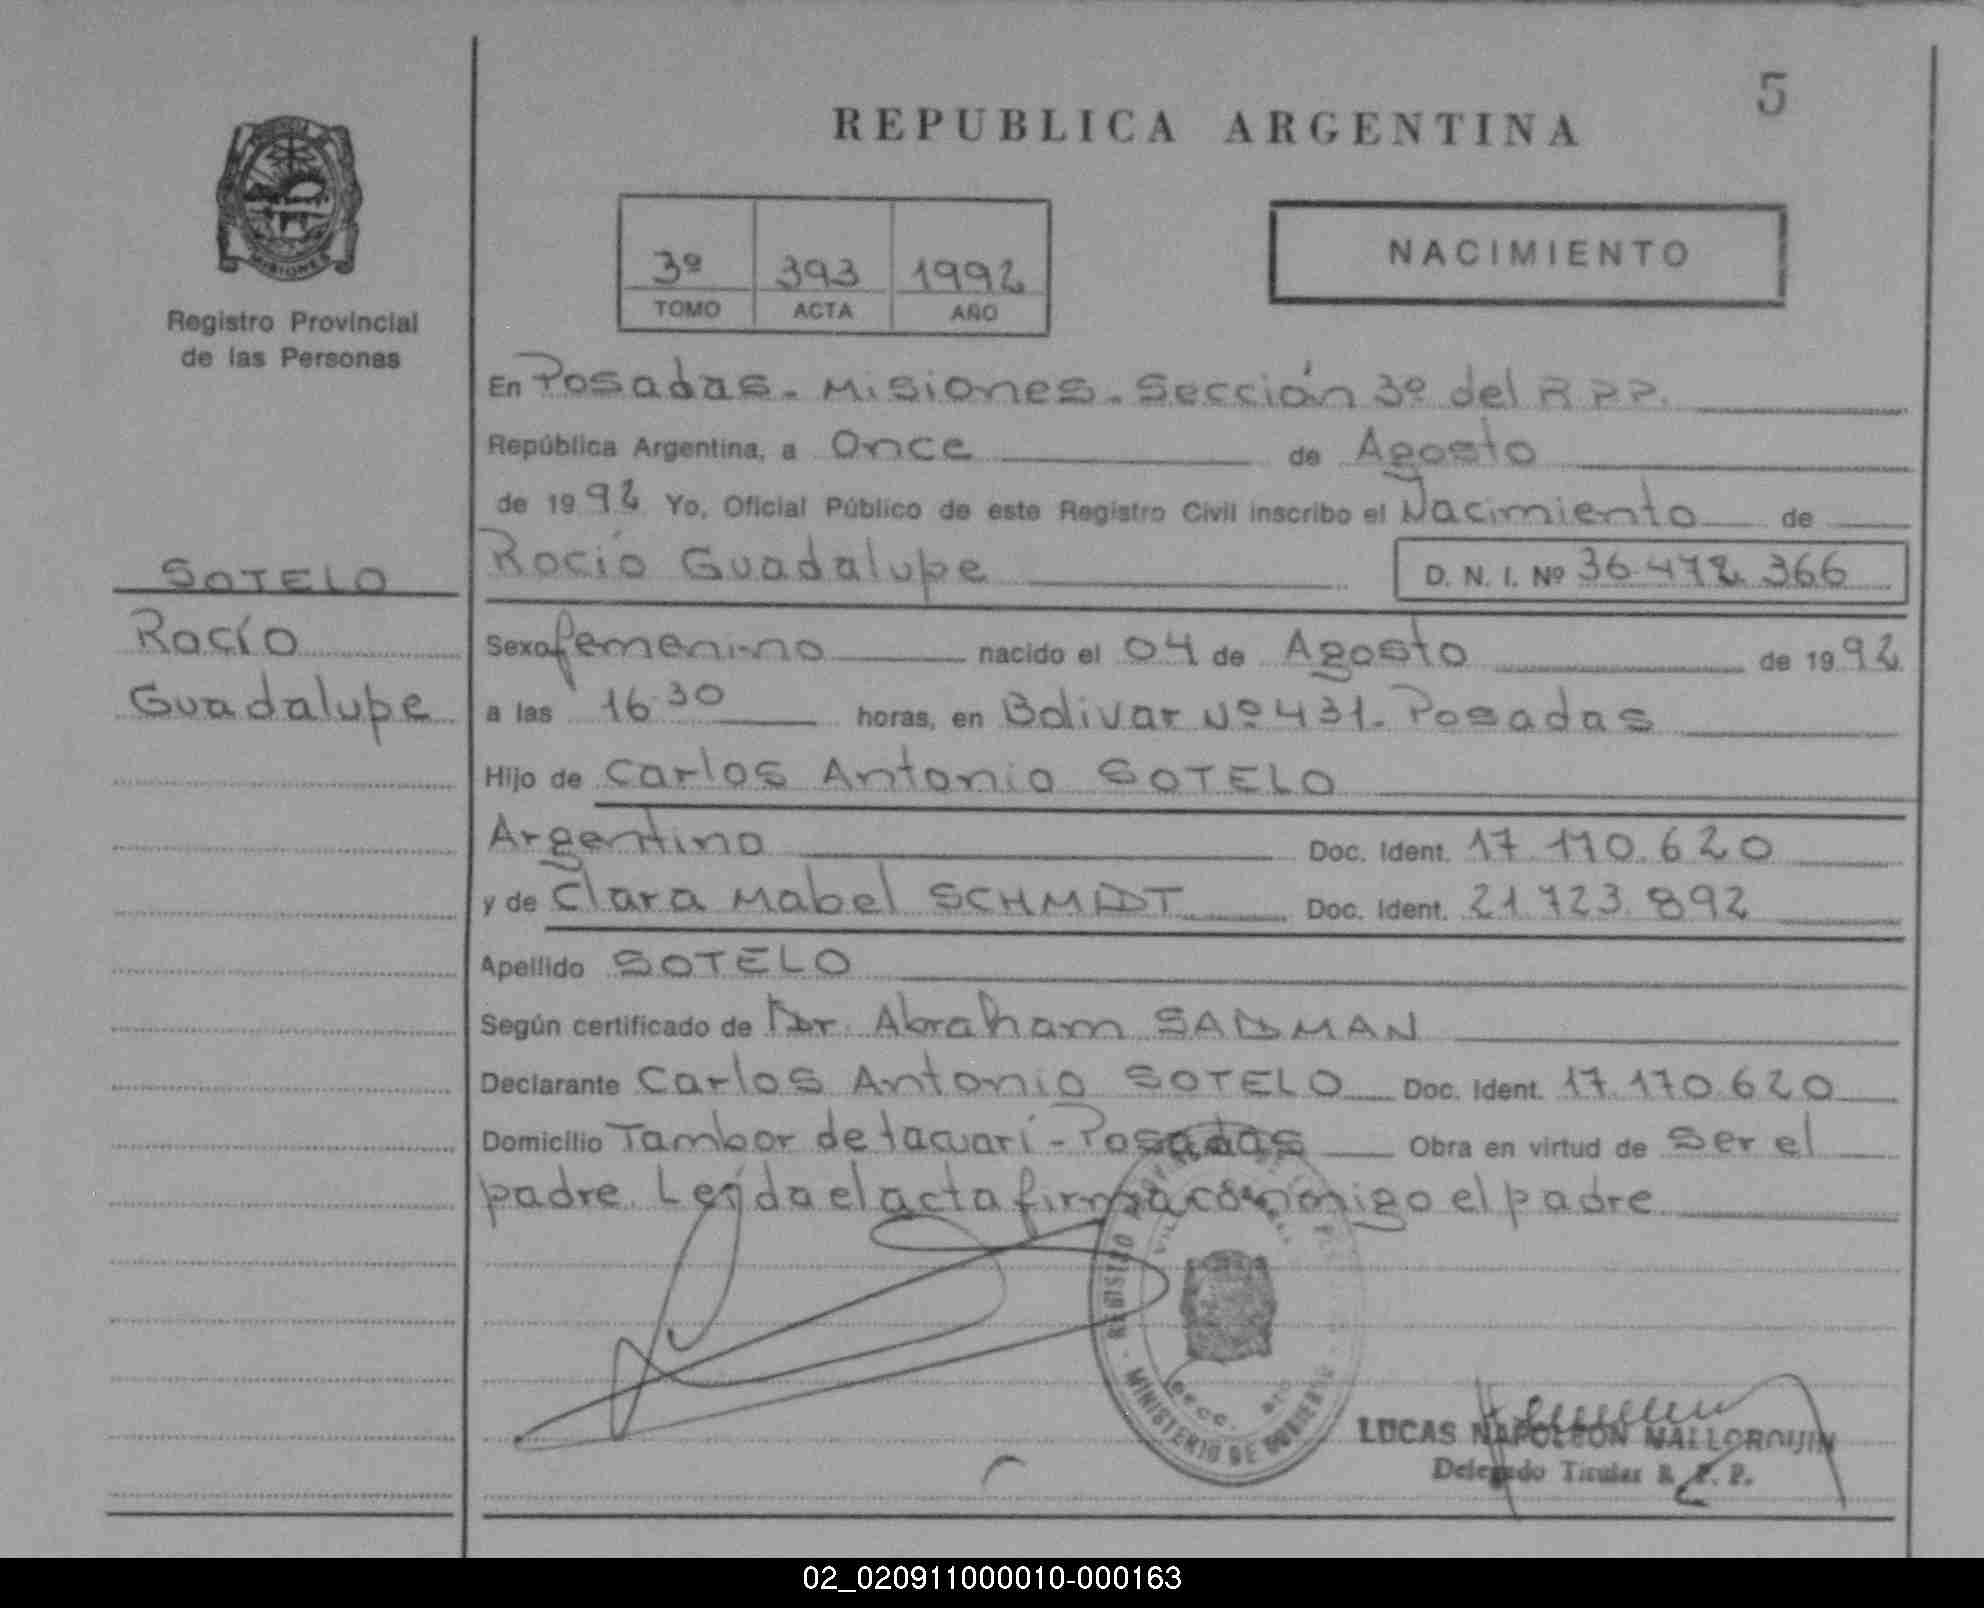 5
REPUBLICA ARGENTINA
MISIONES
Registro Provincial
de las Personas
3º 393 1992
TOMO ACTA AÑO
NACIMIENTO
En Posadas. Misiones. Sección 3º del R.P.P.
República Argentina, a Once de Agosto
de 1992 Yo, Oficial Público de este Registro Civil inscribo el Nacimiento de
Rocío Guadalupe D. N. I. Nº 36.472.366
SOTELO
Rocío
Guadalupe
Sexo femenino nacido el 04 de Agosto de 1992
a las 16.30 horas, en Bolivar Nº 431. Posadas
Hijo de Carlos Antonio SOTELO
Argentino Doc. Ident. 17.170.620
y de Clara Mabel SCHMIDT Doc. Ident. 21.723.892
Apellido SOTELO
Según certificado de Dr. Abraham SADMAN
Declarante Carlos Antonio SOTELO Doc. Ident. 17.170.620
Domicilio Tambor de tacuarí - Posadas Obra en virtud de Ser el
padre. Leída el acta firma conmigo el padre
REGISTRO
MINISTERIO DE GOBIERNO
LUCAS NAPOLEON MALLORQUIN
Delegado Titular R. P. P.
02_020911000010-000163